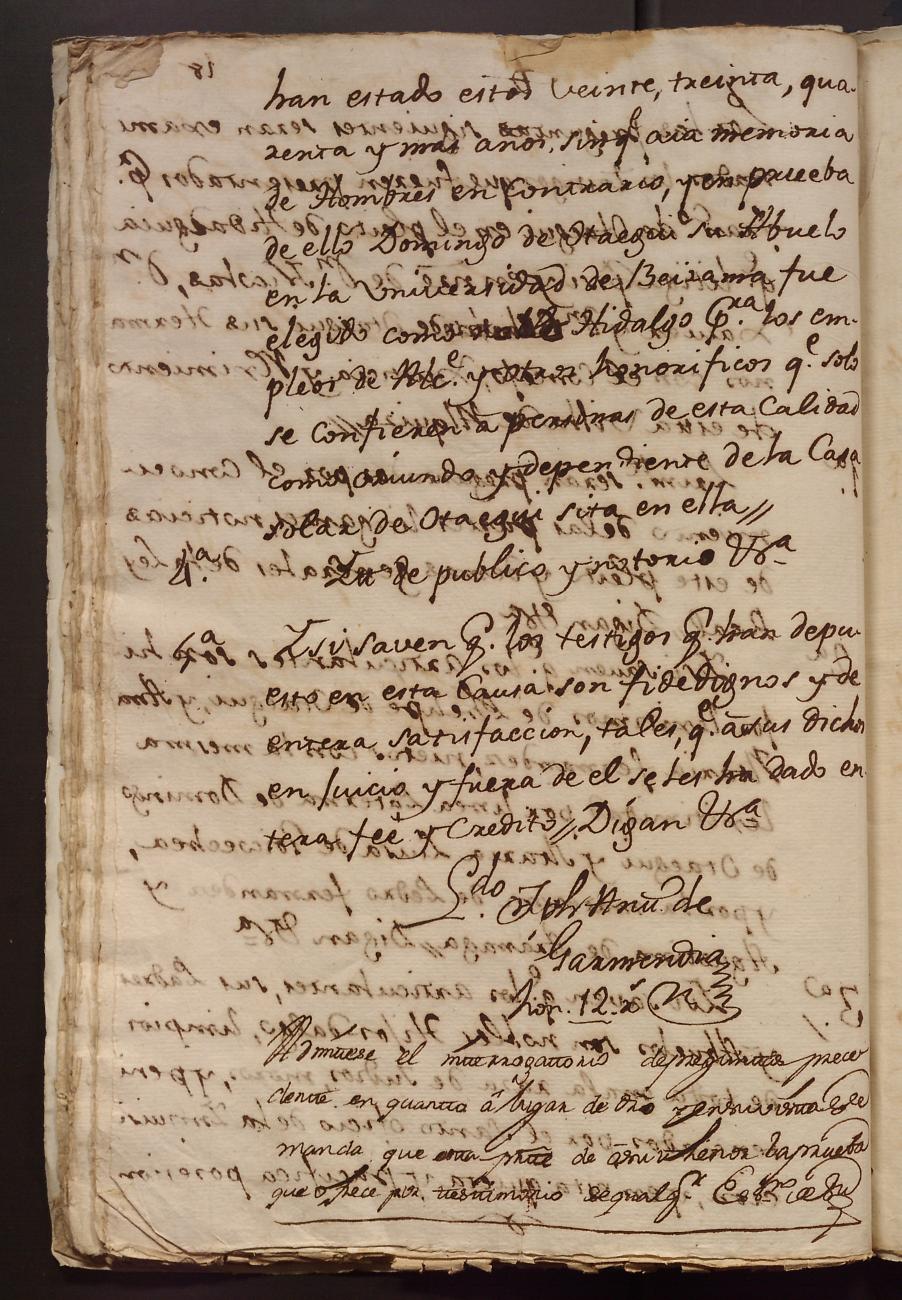 han estado estos veinte, treinta, qua-
renta y mas años, sin qe. aia memoria
de Hombres en contrario, y en prueba
de ello Domingo de Otaegui su Abuelo
en la Universidad de Beizama fue
elegido como Hidalgo pra. los em-
pleos de Alce. y otros honorificos qe. solo
se confieren a personas de esta Calidad
como oriundo y dependiente de la Casa
solar de Otaegui sita en ella //
4.a de publico y notorio &ra
4a Y si saven q. los testigos q. han depu-
esto en esta Causa son fidedignos y de
entera satisfaccion, tales, qe. a sus dichos
en Juicio y fuera de el se les ha dado en-
tera feé y Credito //, Digan &ra
Ldo. de
Garmendia
hon. 12. Rs
Admitese el interrogattorio de preguntas prece
dente en quantto á lugar de dro y
manda que esta partte de la prueba
que ofrece por testtimonio de qualqr